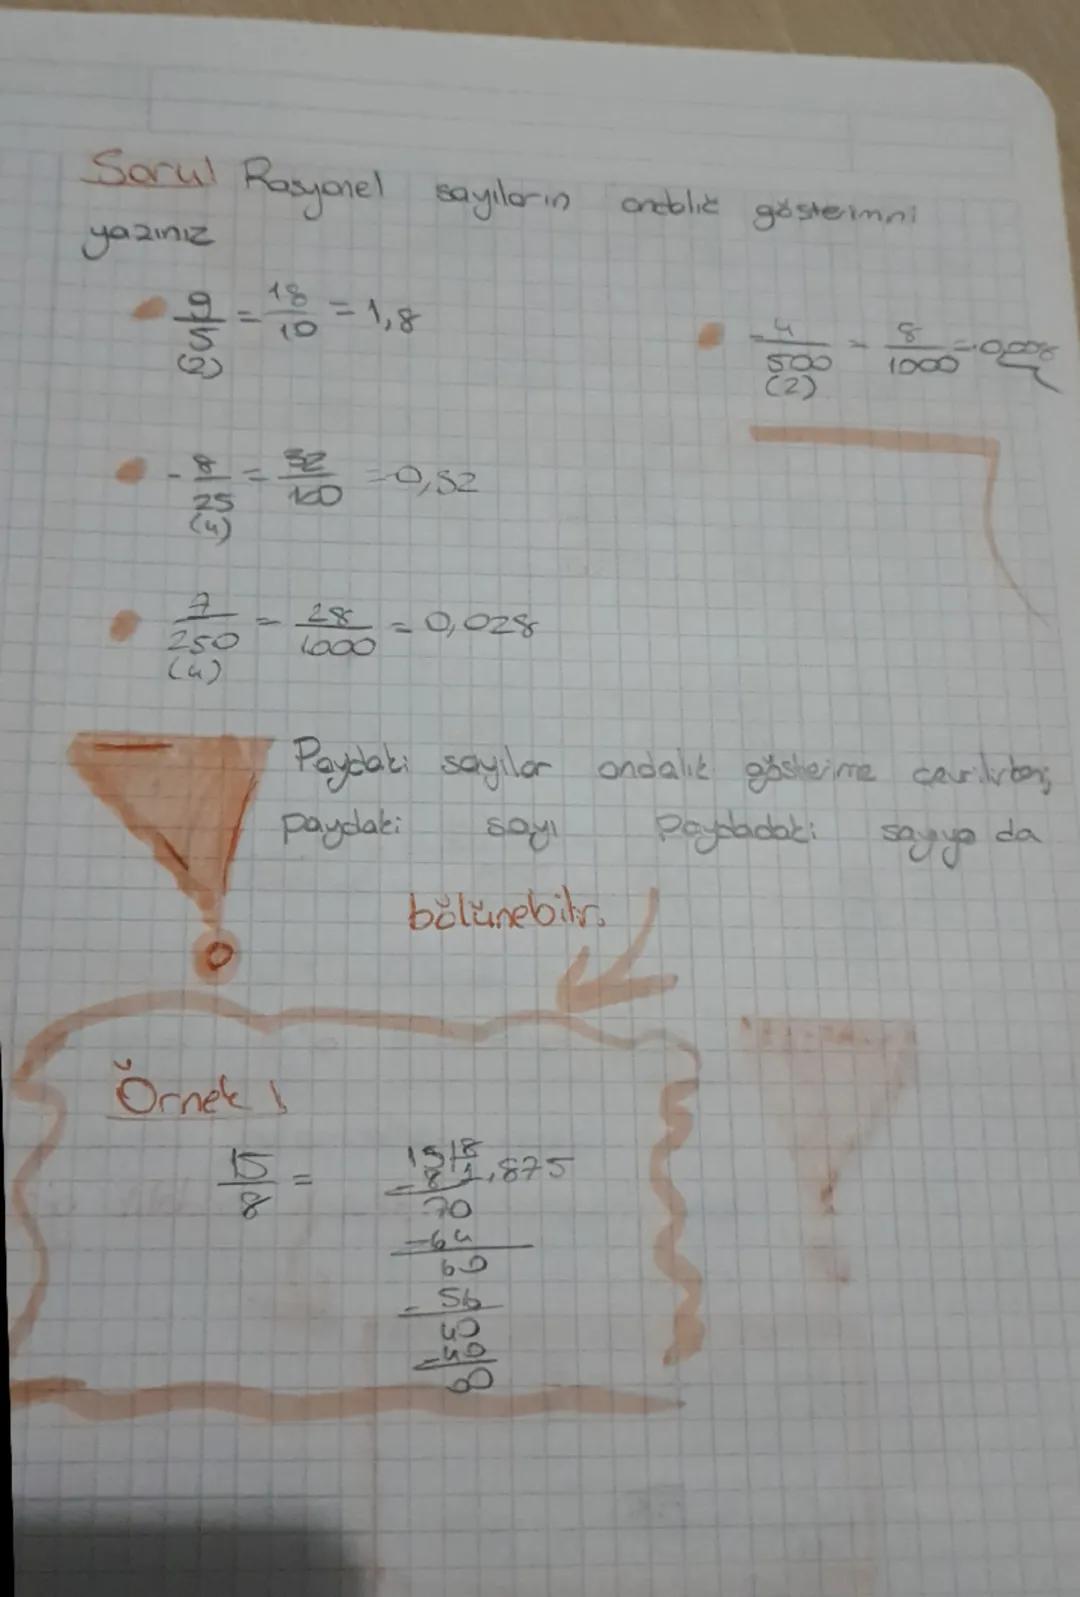 Soru! Rasyonel sayıların ondalık gösterimni
yazınız
9/5 = 18/10 = 1,8
(2)
-4/500 = 8/1000 = -0,008
(2)
-8/25 = 32/100 = -0,32
(4)
7/250 = 28/1000 = 0,028
(4)
Paydaki sayılar ondalık gösterime çevrilirken;
paydaki sayı paydadaki sayıya da
bölünebilir.
Örnek !
15/8 =
15 | 8
- 8 1,875
70
-64
60
- 56
40
-40
00